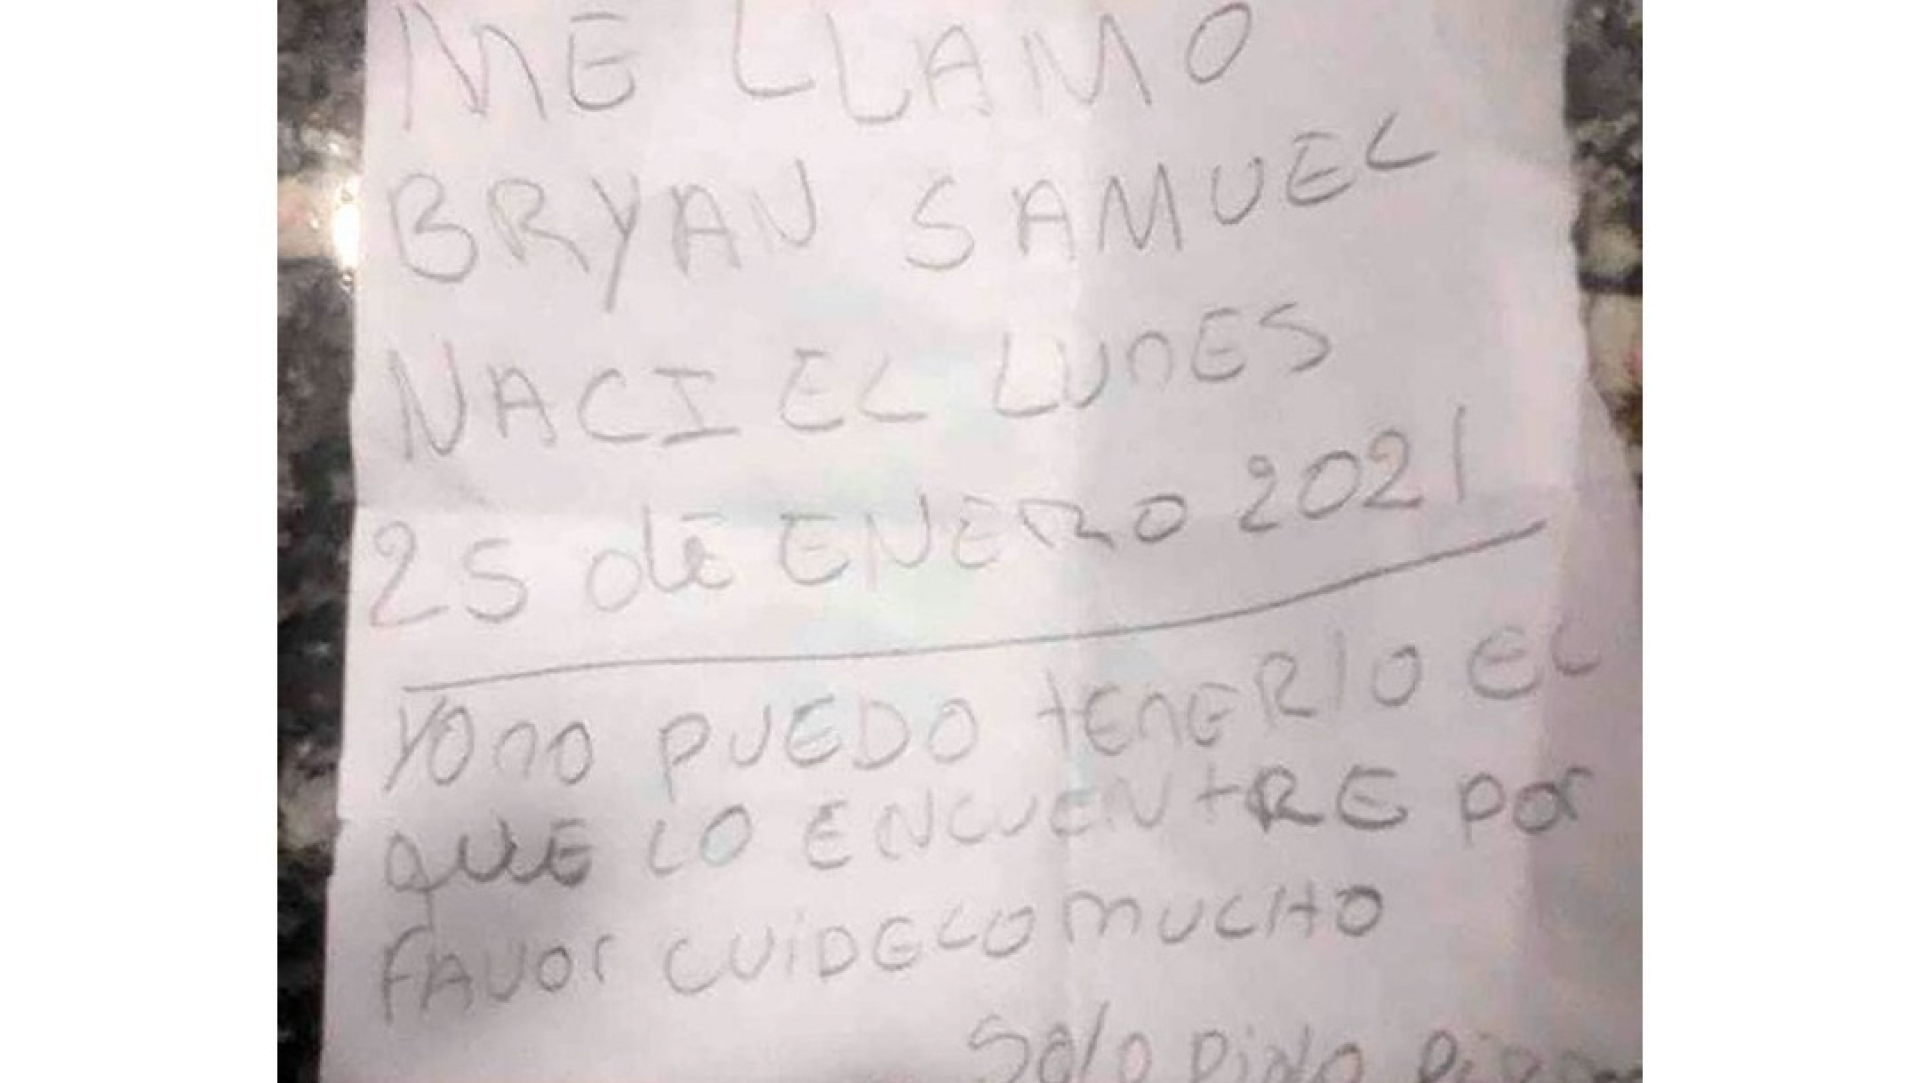 ME LLAMO
BRYAN SAMUEL
NACI EL LUNES
25 de ENERO 2021
YO no PUEDO tENERlO EL
QUE LO ENCUENtRE por
FAVOr CUiDELO MUCHO
Solo pido